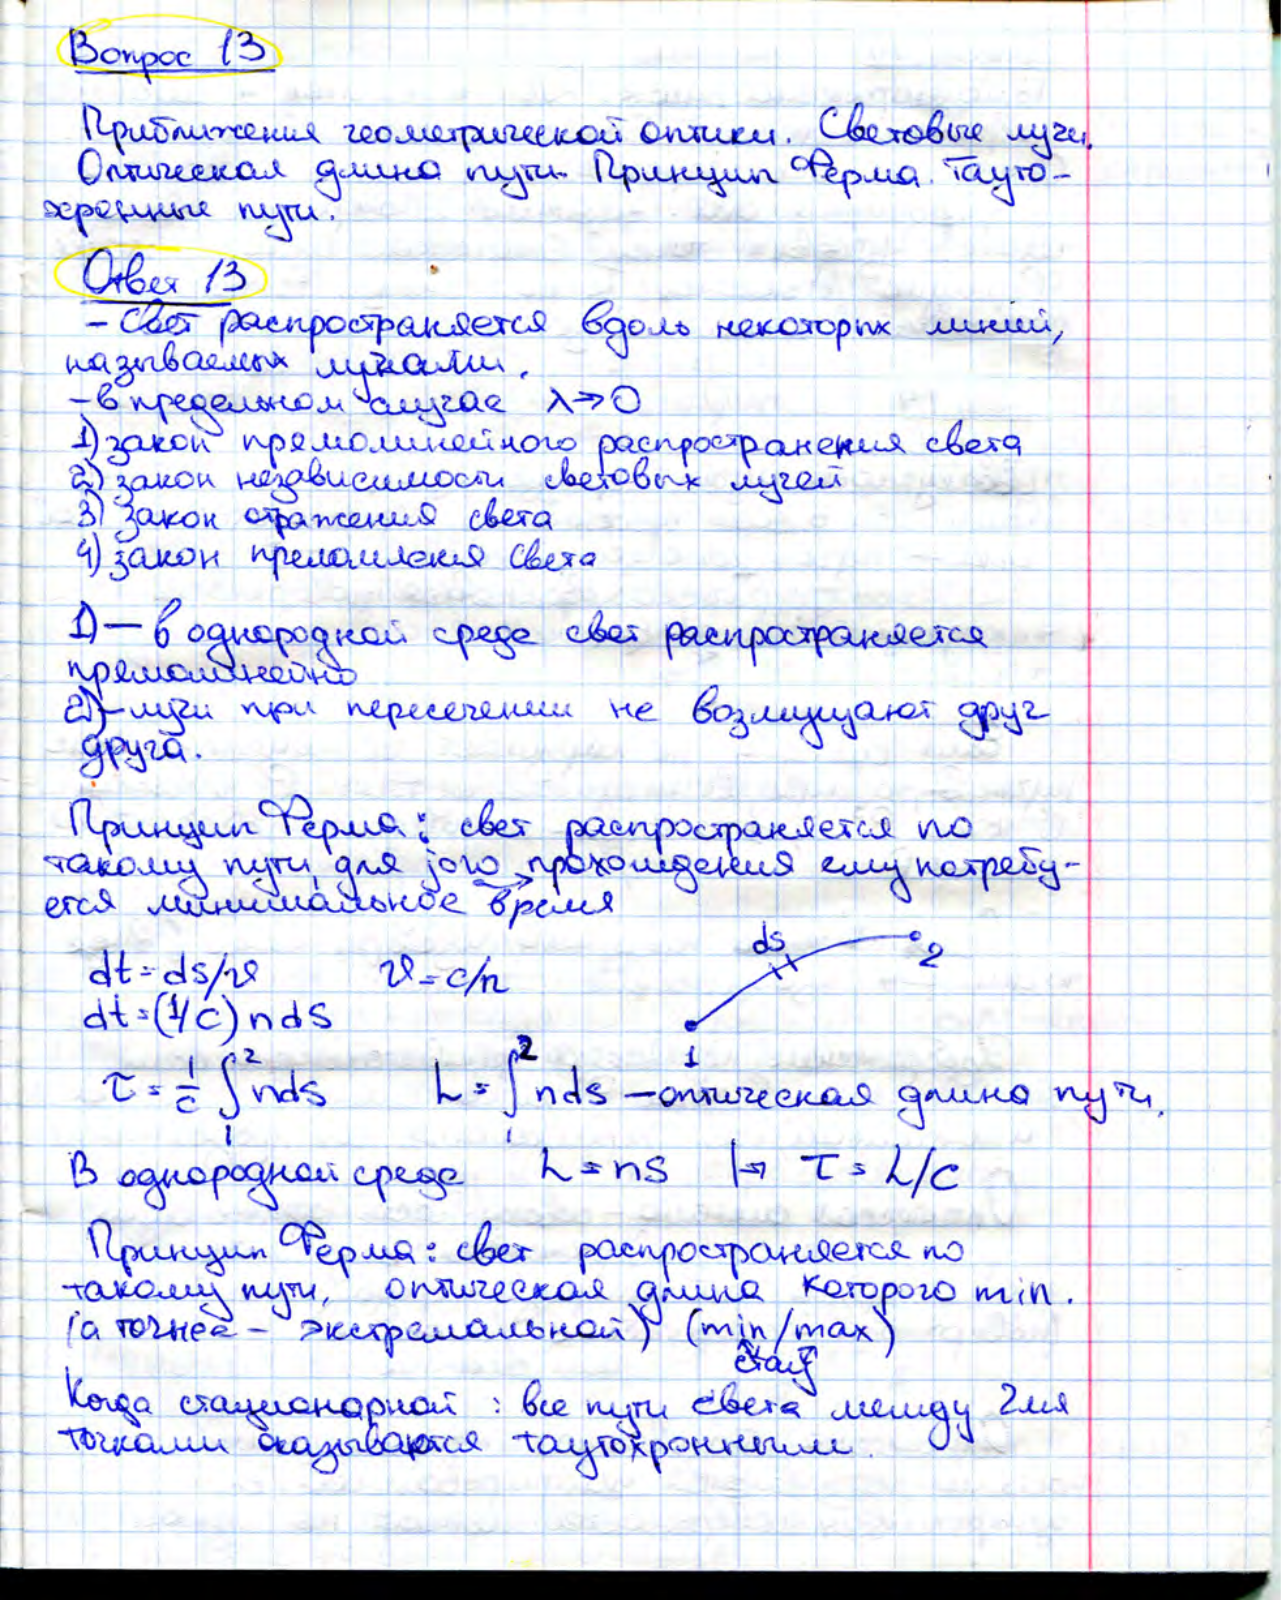 Вопрос 13
Приближения геометрической оптики. Световые лучи.
Оптическая длина пути. Принцип Ферма. Тауто-
хронные пути.
Ответ 13
- Свет распространяется вдоль некоторых линий,
называемых лучами.
- в предельном случае λ→0
1) закон прямолинейного распространения света
2) закон независимости световых лучей
3) закон отражения света
4) закон преломления света
1) — в однородной среде свет распространяется
прямолинейно
2) - лучи при пересечении не возмущают друг
друга.
Принцип Ферма: свет распространяется по
такому пути, для јого прохождения ему потребу-
ется минимальное время
dt = ds/v v = c/n
dt = (1/c) n ds
ds
1
2
τ = 1/c ∫₁² nds L = ∫₁² nds — оптическая длина пути.
В однородной среде L = ns |→ τ = L/c
Принцип Ферма: свет распространяется по
такому пути, оптическая длина которого min.
(а точнее - экстремальной) (min/max)
стац
Когда стационарной: все пути света между 2мя
точками оказываются таутохронными.